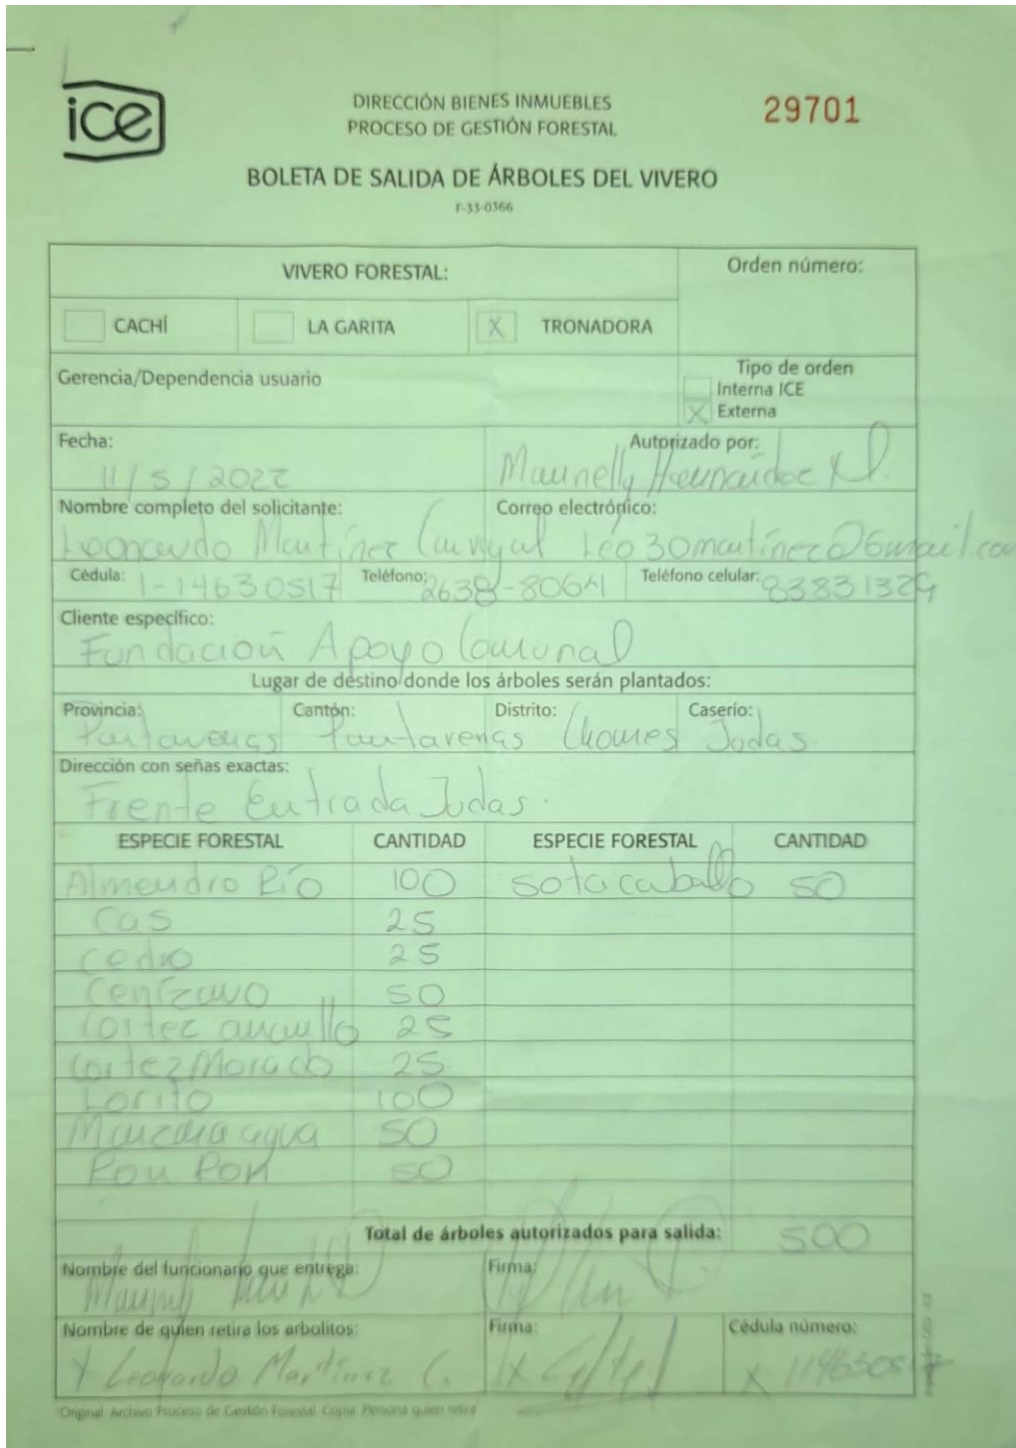 ice
DIRECCIÓN BIENES INMUEBLES
PROCESO DE GESTIÓN FORESTAL
29701
BOLETA DE SALIDA DE ÁRBOLES DEL VIVERO
F-33-0366
VIVERO FORESTAL:
Orden número:
CACHÍ
LA GARITA
X TRONADORA
Gerencia/Dependencia usuario
Tipo de orden
Interna ICE
X Externa
Fecha:
Autorizado por:
11/5/2022
Maunelly Hernández
Nombre completo del solicitante:
Correo electrónico:
Leonardo Martínez Carvajal Leo30martinez@Gmail.com
Cédula: 1-14630517 Teléfono: 2638-8064 Teléfono celular: 83831329
Cliente específico:
Fundación Apoyo Comunal
Lugar de destino donde los árboles serán plantados:
Provincia: Cantón: Distrito: Caserío:
Puntarenas Puntarenas Chomes Judas.
Dirección con señas exactas:
Frente Entrada Judas.
ESPECIE FORESTAL CANTIDAD ESPECIE FORESTAL CANTIDAD
Almendro Río 100 Sotacaballo 50
Cas 25
Cedro 25
Cenízaro 50
Cortez amarillo 25
Cortez Morado 25
Lorito 100
Manzana agua 50
Ron Ron 50
Total de árboles autorizados para salida: 500
Nombre del funcionario que entrega:
Firma:
Nombre de quien retira los arbolitos:
Firma:
Cédula número:
X Leonardo Martínez C. X X 114630517
*Original: Archivo Proceso de Gestión Forestal. Copia: Persona quien retira